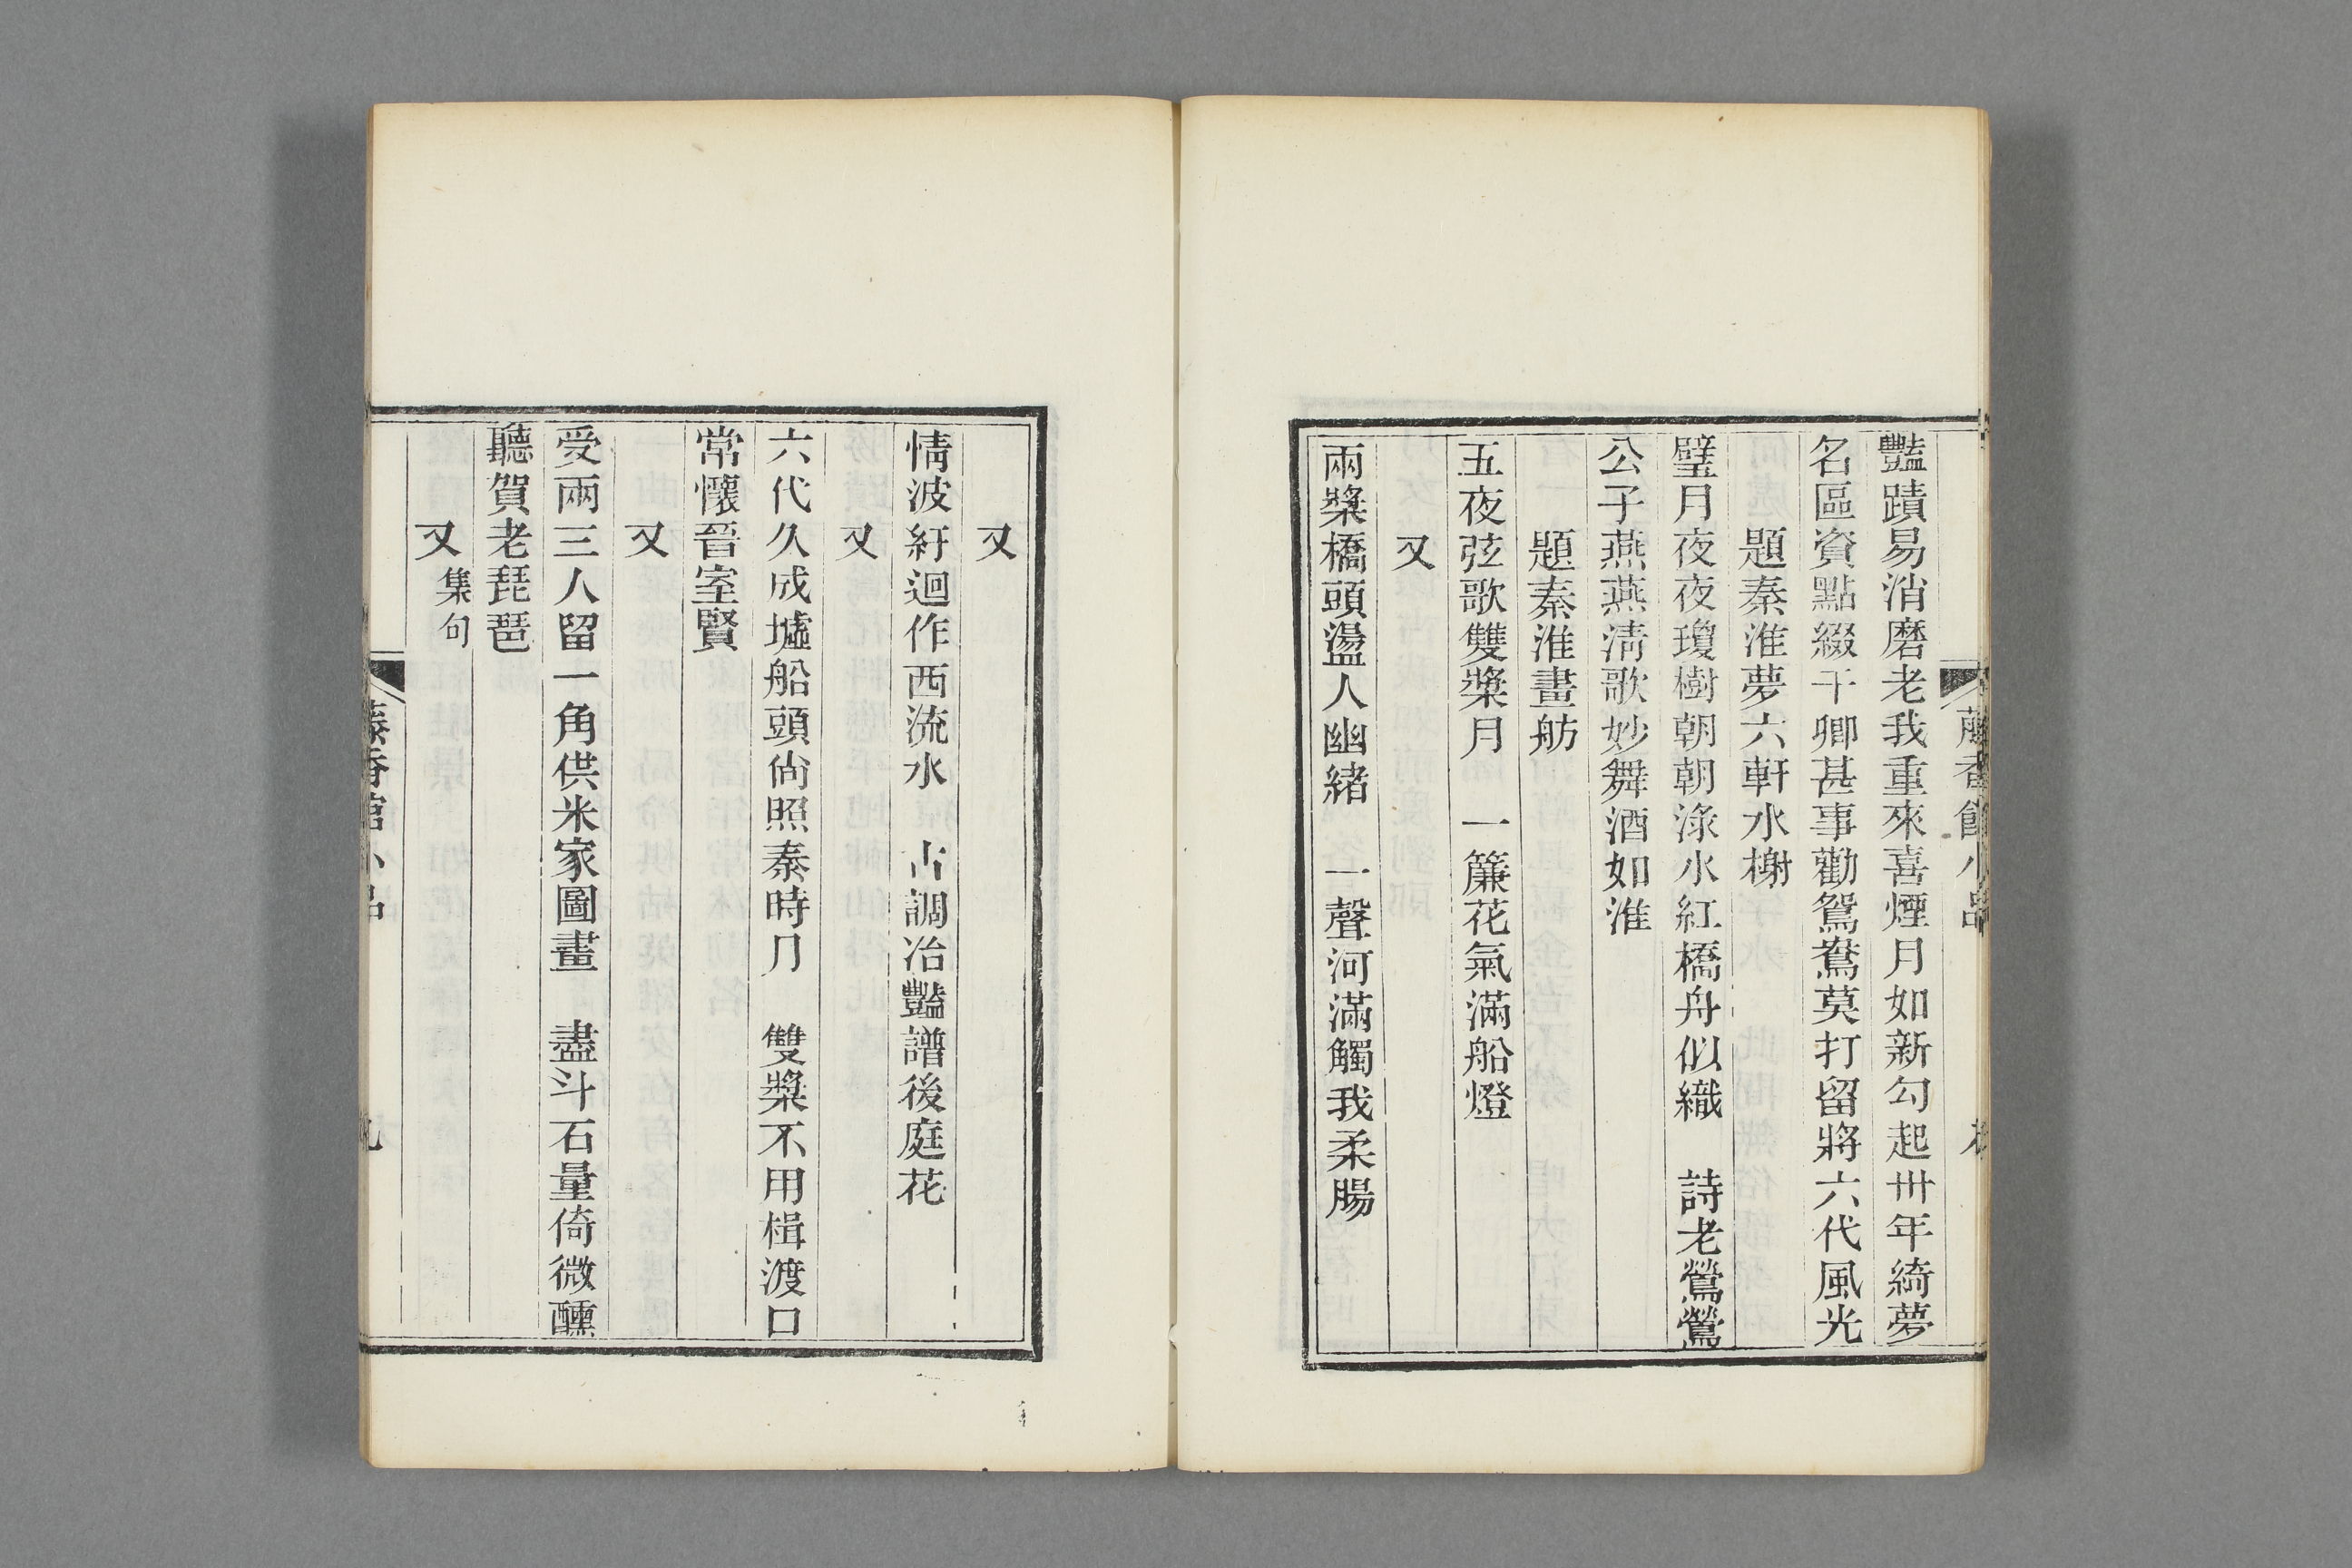 豔蹟易消磨老我重來喜煙月如新勾起卅年綺夢
名區資點綴干卿甚事勸鴛鴦莫打留將六代風光
題秦淮夢六軒水榭
璧月夜夜瓊樹朝朝淥水紅橋舟似織　詩老鶯鶯
公子燕燕淸歌妙舞酒如淮
題秦淮畫舫
五夜弦歌雙槳月　一簾花氣滿船燈
又
兩槳橋頭盪人幽緒　一聲河滿觸我柔腸
又
情波紆迴作西流水　古調冶豔譜後庭花
又
六代久成墟船頭尙照秦時月　雙槳不用楫渡口
常懷晉室賢
又
受兩三人留一角供米家圖畫　盡斗石量倚微醺
聽賀老琵琶
又集句
藤香館小品
九